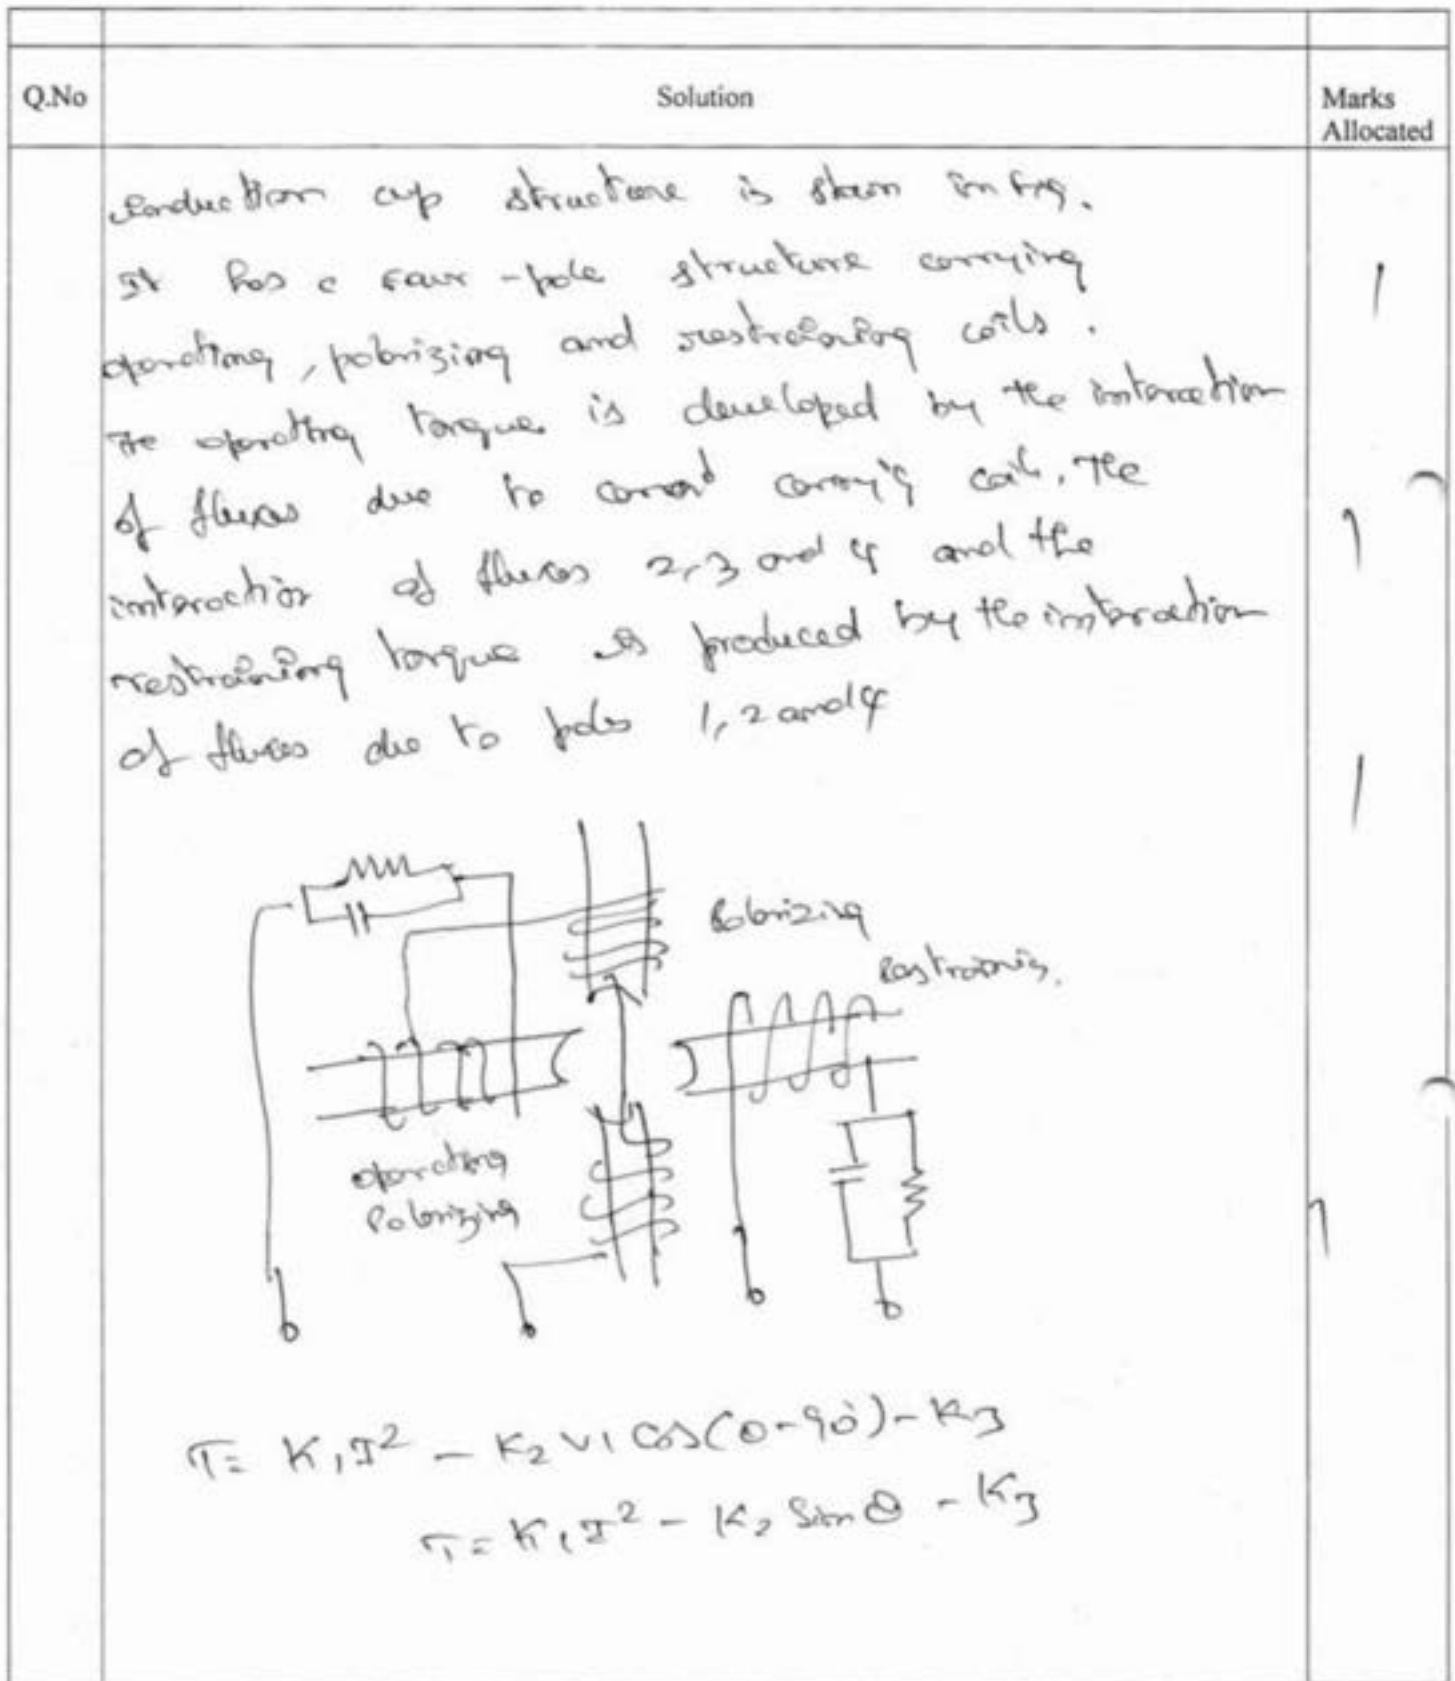 Q.No
Solution
Marks
Allocated
Induction cup structure is shown in fig.
It has a four-pole structure carrying
1
operating, polarizing and restraining coils.
The operating torque is developed by the interaction
of fluxes due to current carrying coil. The
1
interaction of fluxes 2, 3 and 4 and the
restraining torque is produced by the interaction
of fluxes due to poles 1, 2 and 4
1
Polarizing
Restraining.
operating
Polarizing
1
T = K₁I² - K₂VI Cos(θ-90°) - K₃
T = K₁I² - K₂ Sin θ - K₃